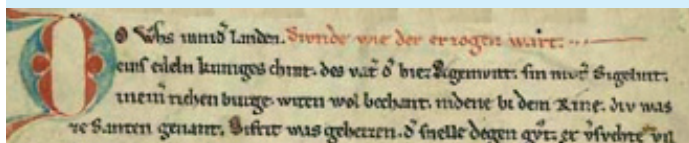 DO Whs innid̾ landen. Swnde wie der erzogen wart.
eins edeln kuniges chint. des vat̾ d̾ hiez Sigemunt. sin mvt̾ Sigelint.
in einer richen burge. witen wol bechant. nidene bi dem Rine. div was
ze Santen genant. Sifrit was geheizen. d̾ snelle degen gv̊t. er v̾suchte vil